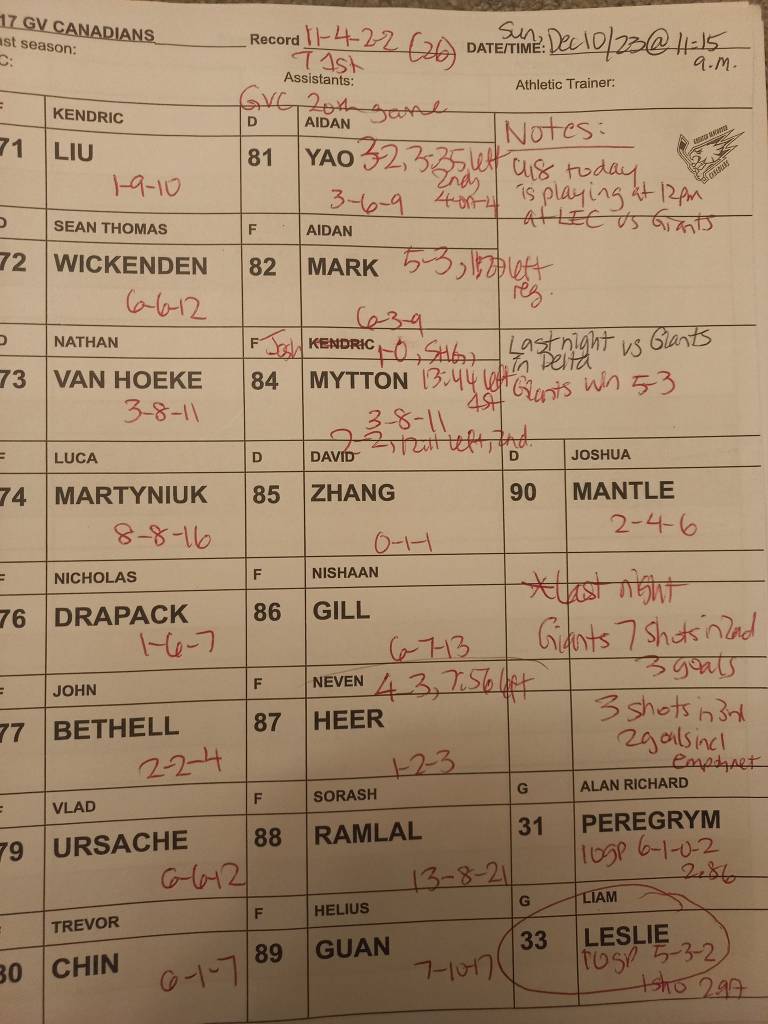 17 GV CANADIANS Record 11-4-2-2 (26) DATE/TIME: Sun, Dec 10/23 @ 11:15 a.m.
ast season: T 1st
C: Assistants: Athletic Trainer:
GVC 20th game
F KENDRIC D AIDAN Notes:
71 LIU 81 YAO 3-2, 3:35 left 2nd, 4-on-4
1-9-10 3-6-9
U18 today
is playing at 12pm
at LEC vs Giants
D SEAN THOMAS F AIDAN
72 WICKENDEN 82 MARK 5-3, left reg.
6-6-12 6-3-9
D NATHAN F Josh KENDRIC 1-0, SHG,
73 VAN HOEKE 84 MYTTON 13:44 left 1st
3-8-11 3-8-11
Last night vs Giants
in Delta
Giants win 5-3
2-2, 12:11 left, 2nd.
F LUCA D DAVID D JOSHUA
74 MARTYNIUK 85 ZHANG 90 MANTLE
8-8-16 0-1-1 2-4-6
F NICHOLAS F NISHAAN
76 DRAPACK 86 GILL
1-6-7 6-7-13
*Last night
Giants 7 shots in 2nd
3 goals
F JOHN F NEVEN 4-3, 7:56 left
77 BETHELL 87 HEER
2-2-4 1-2-3
3 shots in 3rd
2 goals incl
empty net
F VLAD F SORASH G ALAN RICHARD
79 URSACHE 88 RAMLAL 31 PEREGRYM
6-6-12 13-8-21 10gp 6-1-0-2
2.86
F TREVOR F HELIUS G LIAM
80 CHIN 89 GUAN 33 LESLIE
6-1-7 7-10-17 10gp 5-3-2
1sho 2.97